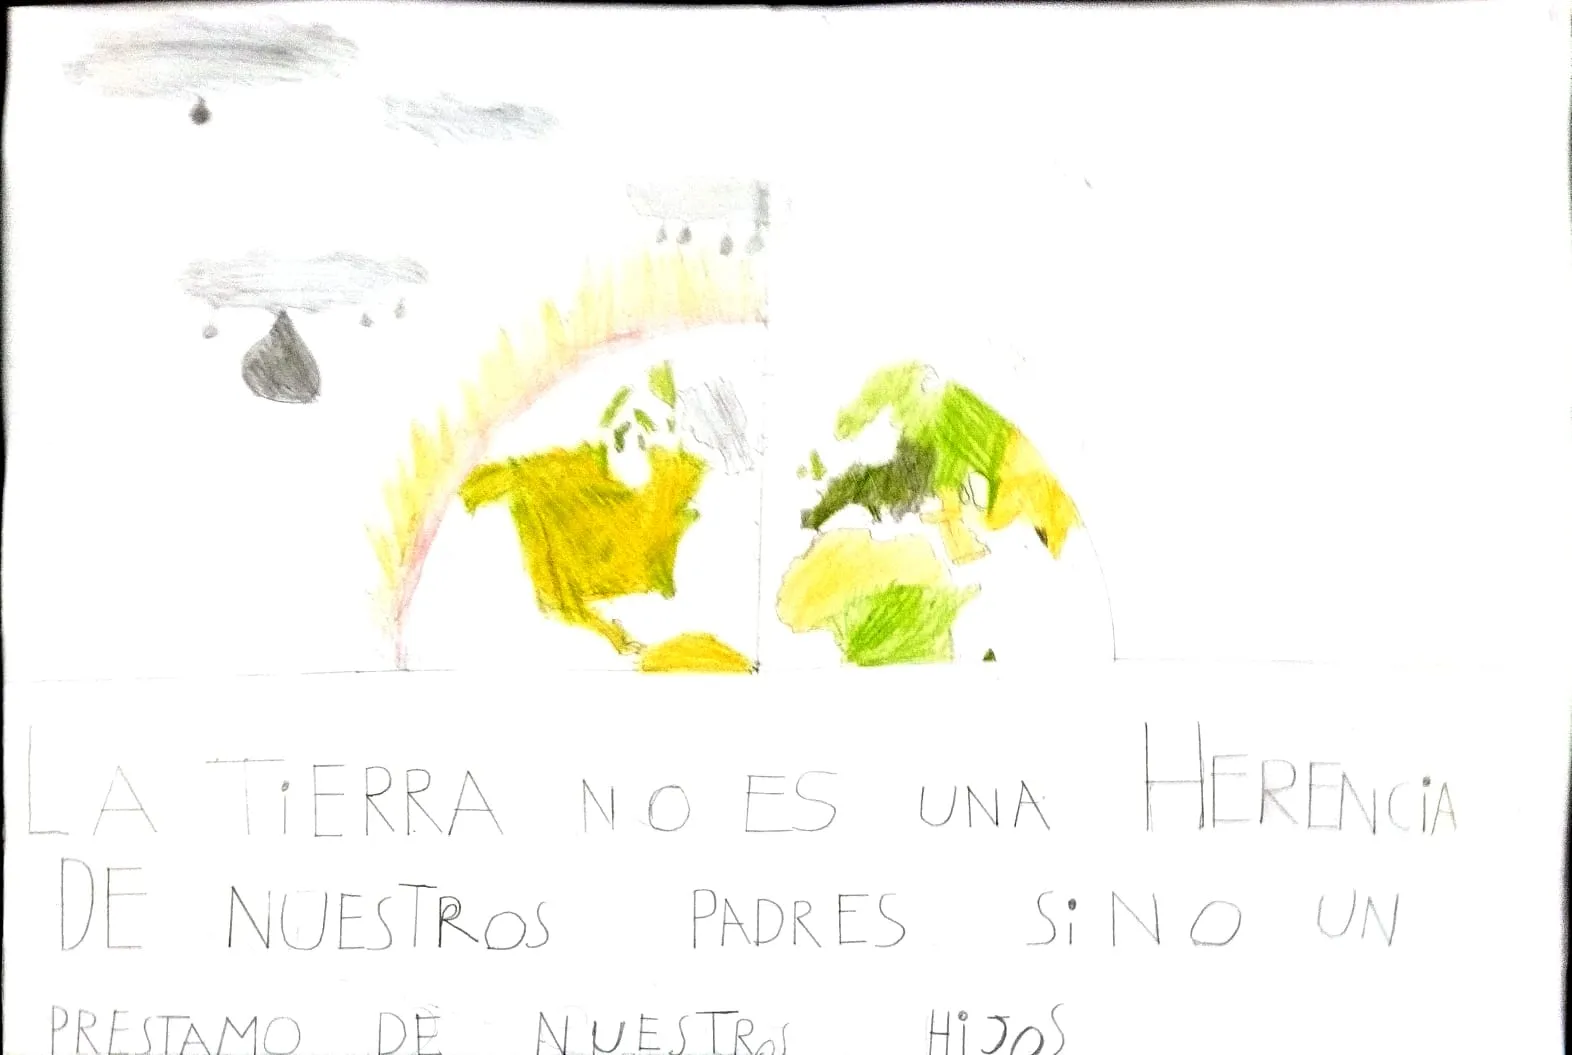 LA TiERRA NO ES UNA HERENCiA
DE NUESTROS PADRES SiNO UN
PRESTAMO DE NUESTROS HiJOS